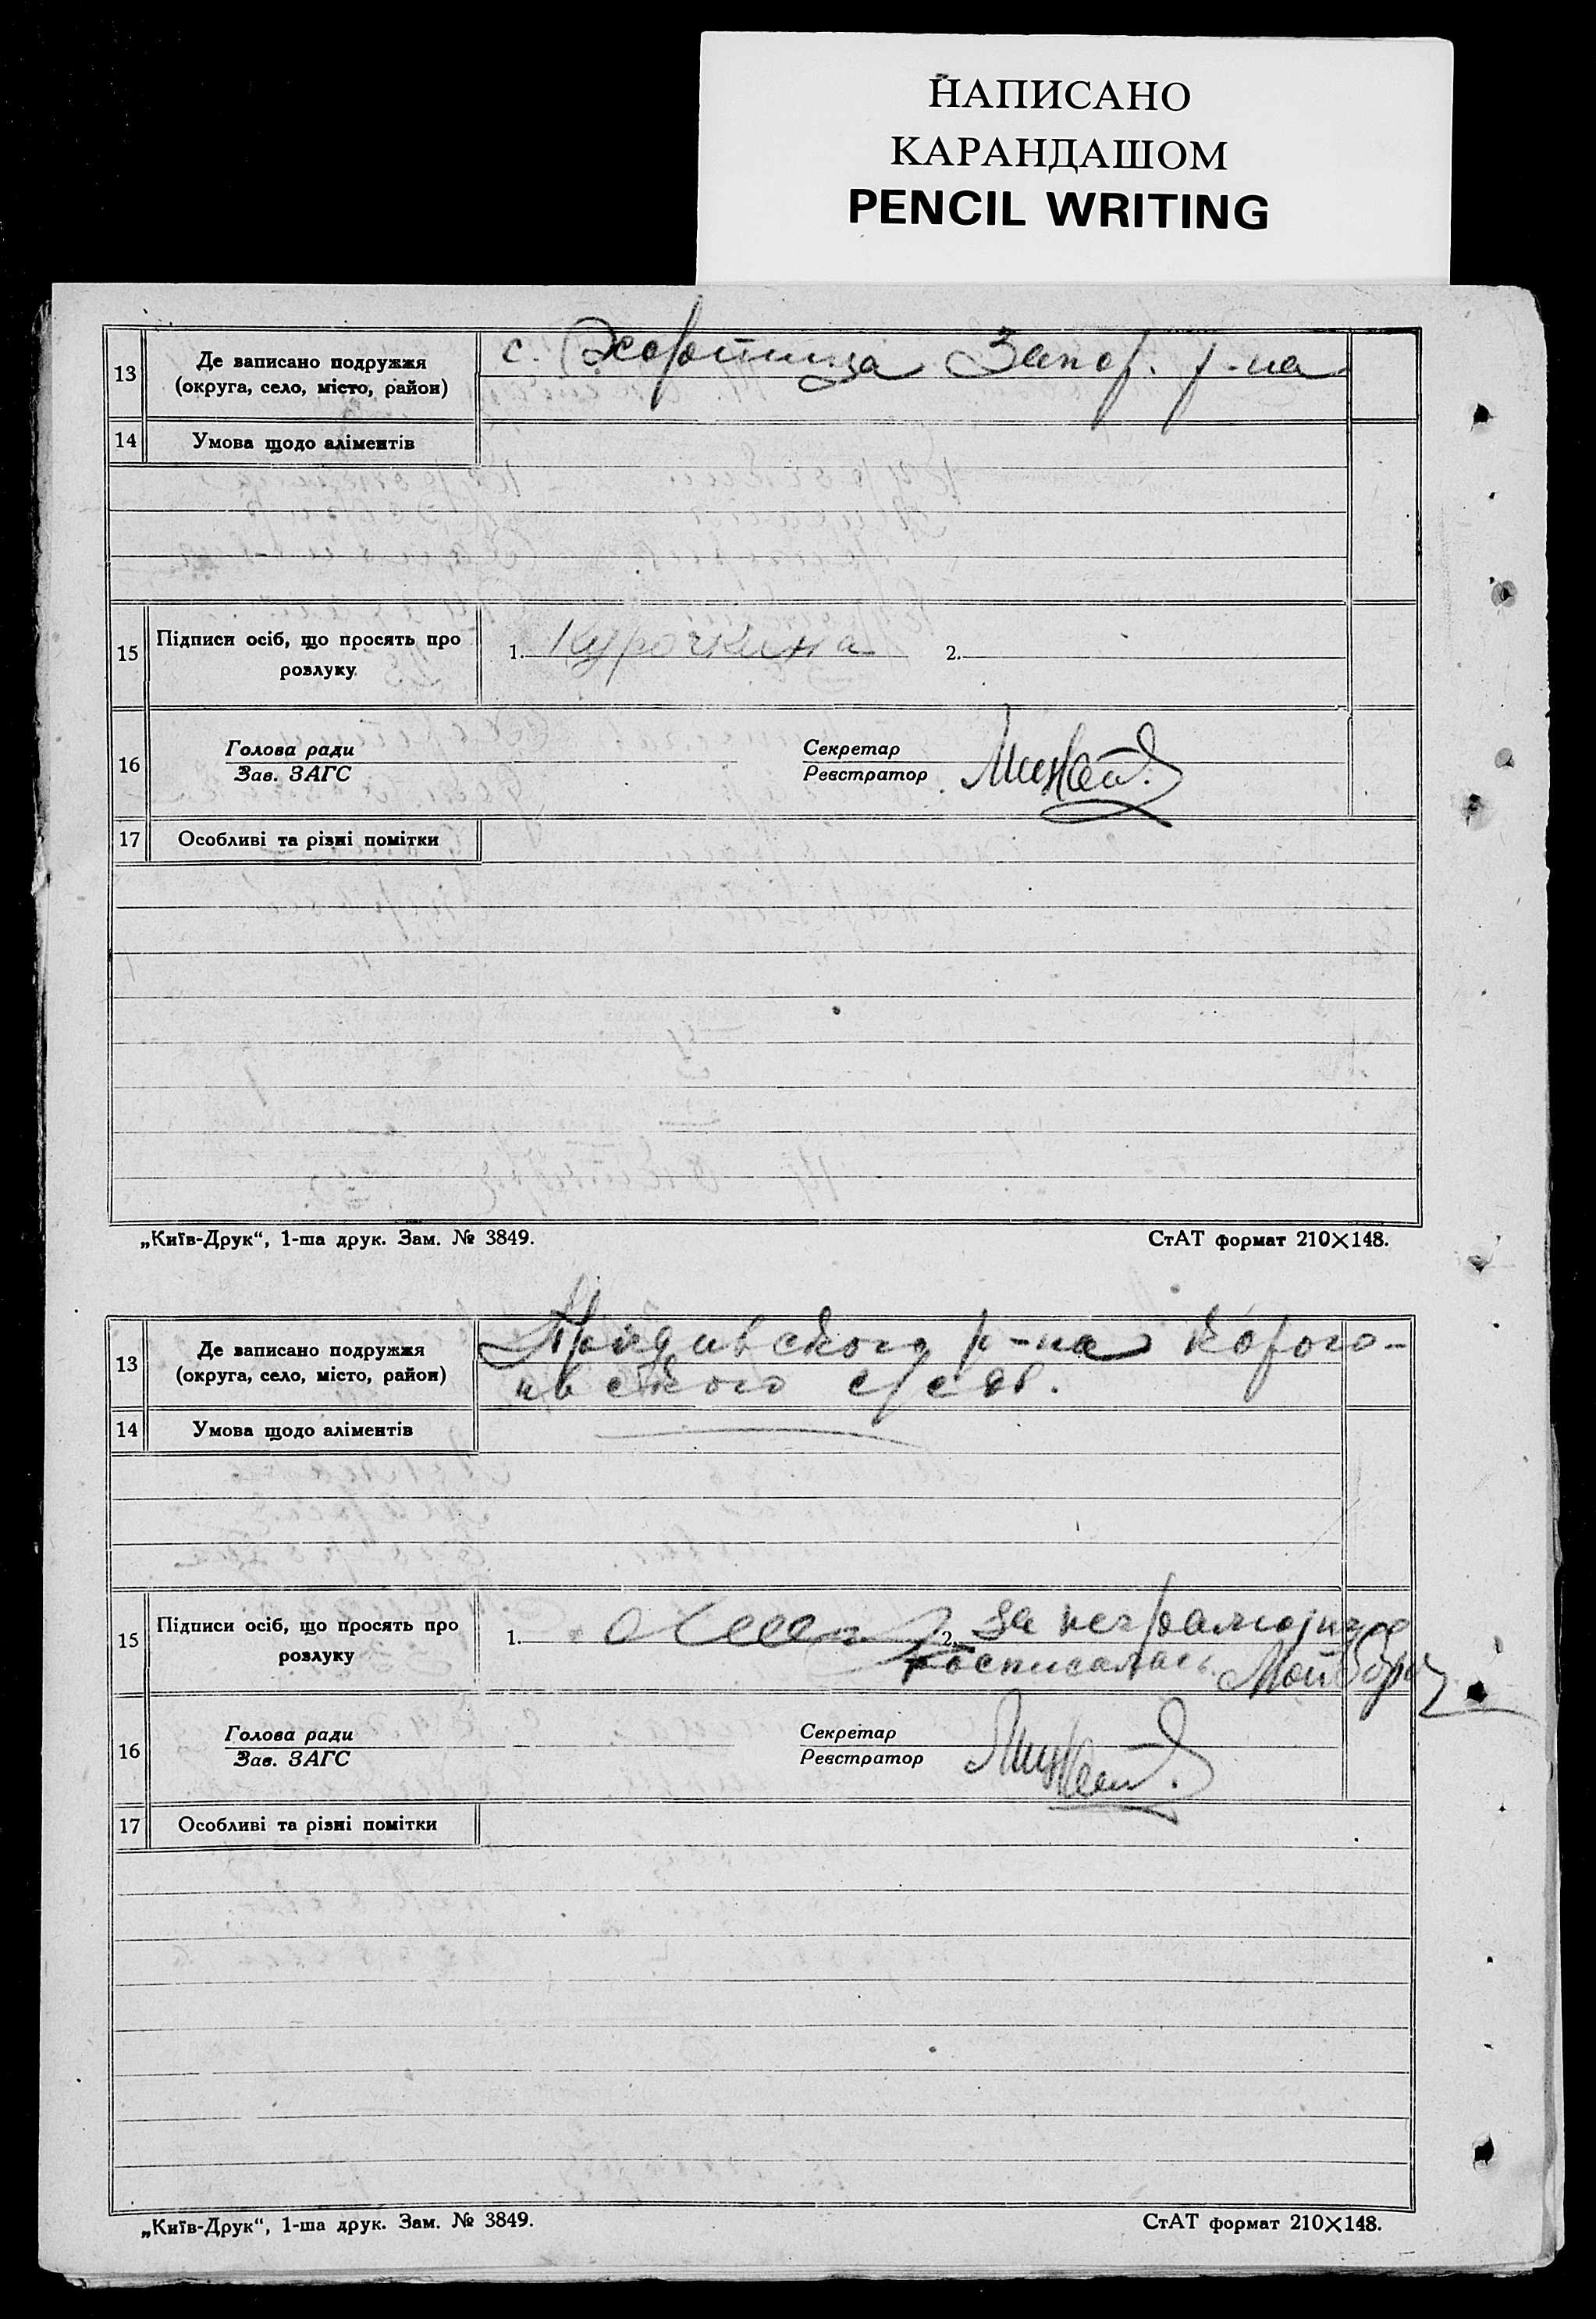 НАПИСАНО
КАРАНДАШОМ
PENCIL WRITING
13 Де записано подружжя
(округа, село, місто, район)
с. Хортица Запор. р-на
14 Умова щодо аліментів
15 Підписи осіб, що просять про
розлуку
1. Курочкина 2.
16 Голова ради
Зав. ЗАГС
Секретар
Реєстратор
17 Особливі та різні помітки
„Київ-Друк“, 1-ша друк. Зам. № 3849. СтАТ формат 210×148.
13 Де записано подружжя
(округа, село, місто, район)
р-на
14 Умова щодо аліментів
15 Підписи осіб, що просять про
розлуку
1. 2. за
росписалась
16 Голова ради
Зав. ЗАГС
Секретар
Реєстратор
17 Особливі та різні помітки
„Київ-Друк“, 1-ша друк. Зам. № 3849. СтАТ формат 210×148.